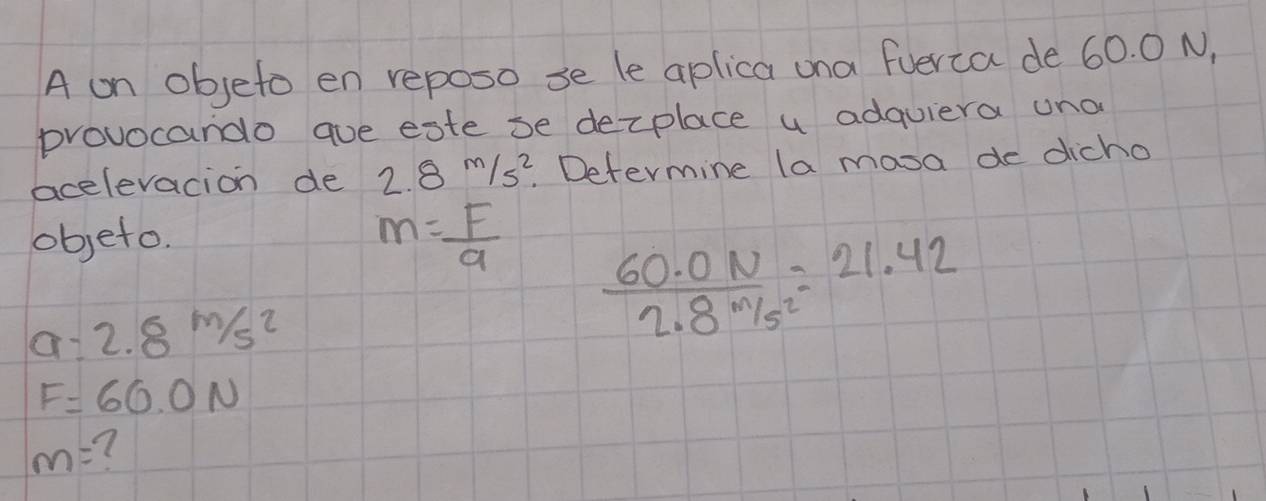 A un objeto en reposo se le aplica una fuerza de 60.0 N,
provocando que este se dezplace y adquiera una
aceleracion de 2.8 m/s². Determine la masa de dicho
objeto.
m = F/a
60.0 N / 2.8 m/s² = 21.42
a = 2.8 m/s²
F = 60.0 N
m = ?